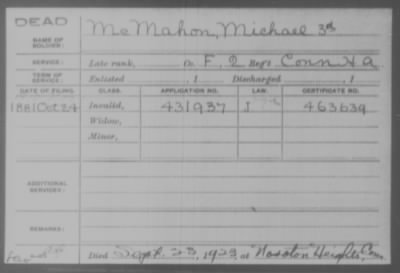 DEAD
NAME OF SOLDIER: McMahon, Michael 3d
SERVICE: Late rank, Co. F, 2 Reg't Conn. H. A.
TERM OF SERVICE: Enlisted , 1 Discharged , 1
DATE OF FILING. CLASS. APPLICATION NO. LAW. CERTIFICATE NO.
1881 Oct 24 Invalid, 431937 J 463639
Widow,
Minor,
ADDITIONAL SERVICES:
REMARKS:
Died Sept. 23, 1923, at Noroton Heights, Conn.